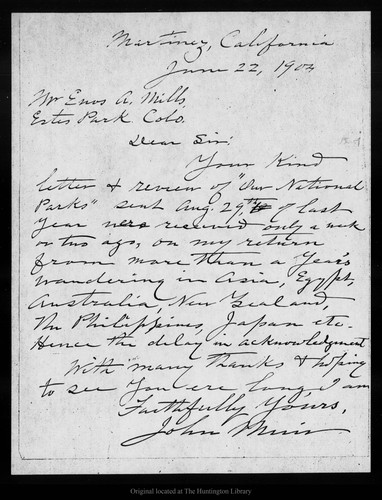 Martinez, California
June 22, 1904
Mr Enos A. Mills,
Estes Park Colo.
Dear Sir:
Your kind
letter & review of "Our National
Parks" sent Aug. 29th, of last
year were received only a week
or two ago, on my return
from more than a year's
wandering in Asia, Egypt,
Australia, New Zealand,
the Philippines, Japan etc.
Hence the delay in acknowledgment
With many thanks & hoping
to see you ere long I am
Faithfully Yours,
John Muir
Original located at The Huntington Library